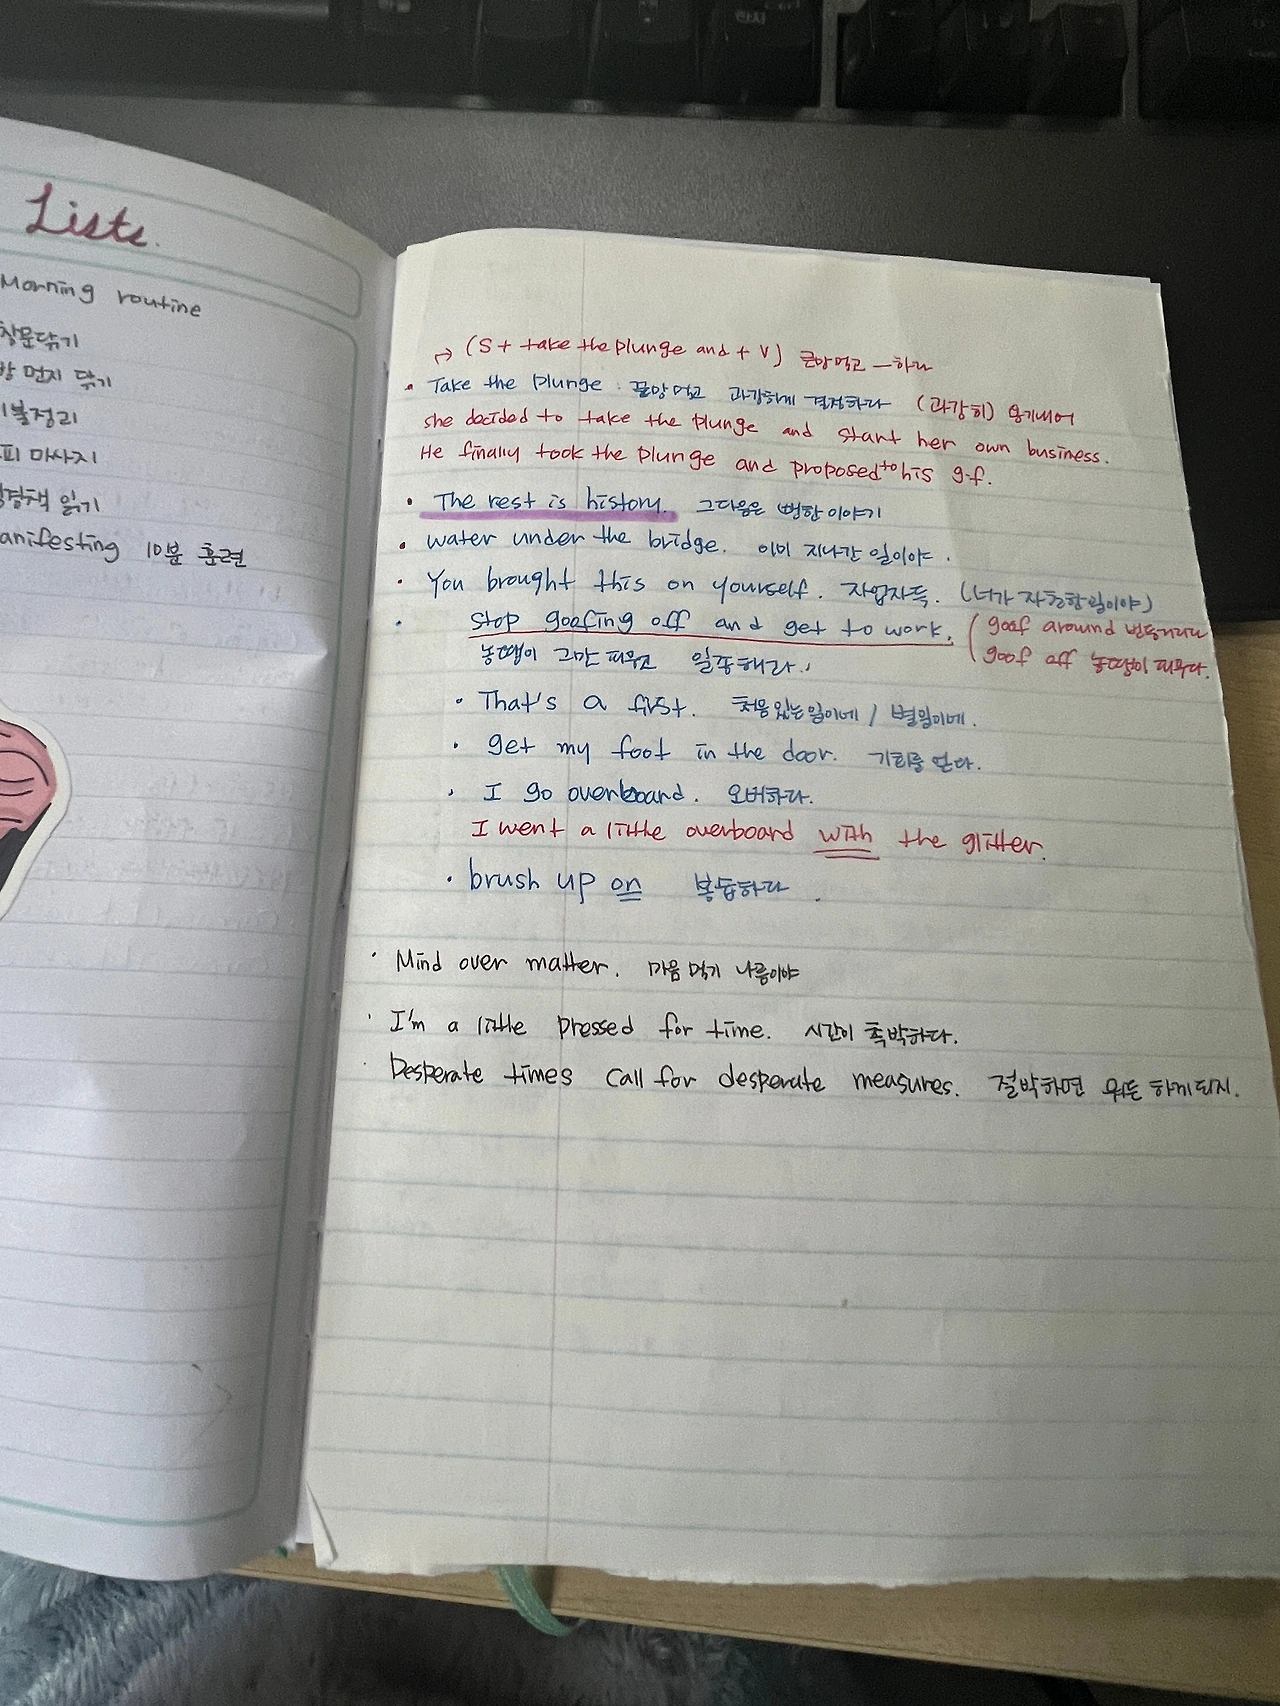 Lists.
Morning routine
창문닦기
방 먼지 닦기
이불정리
피 마사지
경책 읽기
anifesting 10분 훈련
→ (S + take the plunge and + V) 큰맘먹고 ―하다
• Take the plunge : 큰맘먹고 과감하게 결정하다 (과감히) 용기내어
she decided to take the plunge and start her own business.
He finally took the plunge and proposed to his g.f.
• The rest is history. 그다음은 뻔한 이야기
• water under the bridge. 이미 지나간 일이야.
• You brought this on yourself. 자업자득. (너가 자초한일이야)
• stop goofing off and get to work. ( goof around 빈둥거리다
농땡이 그만 피우고 일좀해라. goof off 농땡이 피우다.
• That's a first. 처음있는일이네 / 별일이네.
• get my foot in the door. 기회를 얻다.
• I go overboard. 오버하다.
I went a little overboard with the glitter.
• brush up on 복습하다.
• Mind over matter. 마음먹기 나름이야
• I'm a little pressed for time. 시간이 촉박하다.
• Desperate times call for desperate measures. 절박하면 뭐든 하게되지.